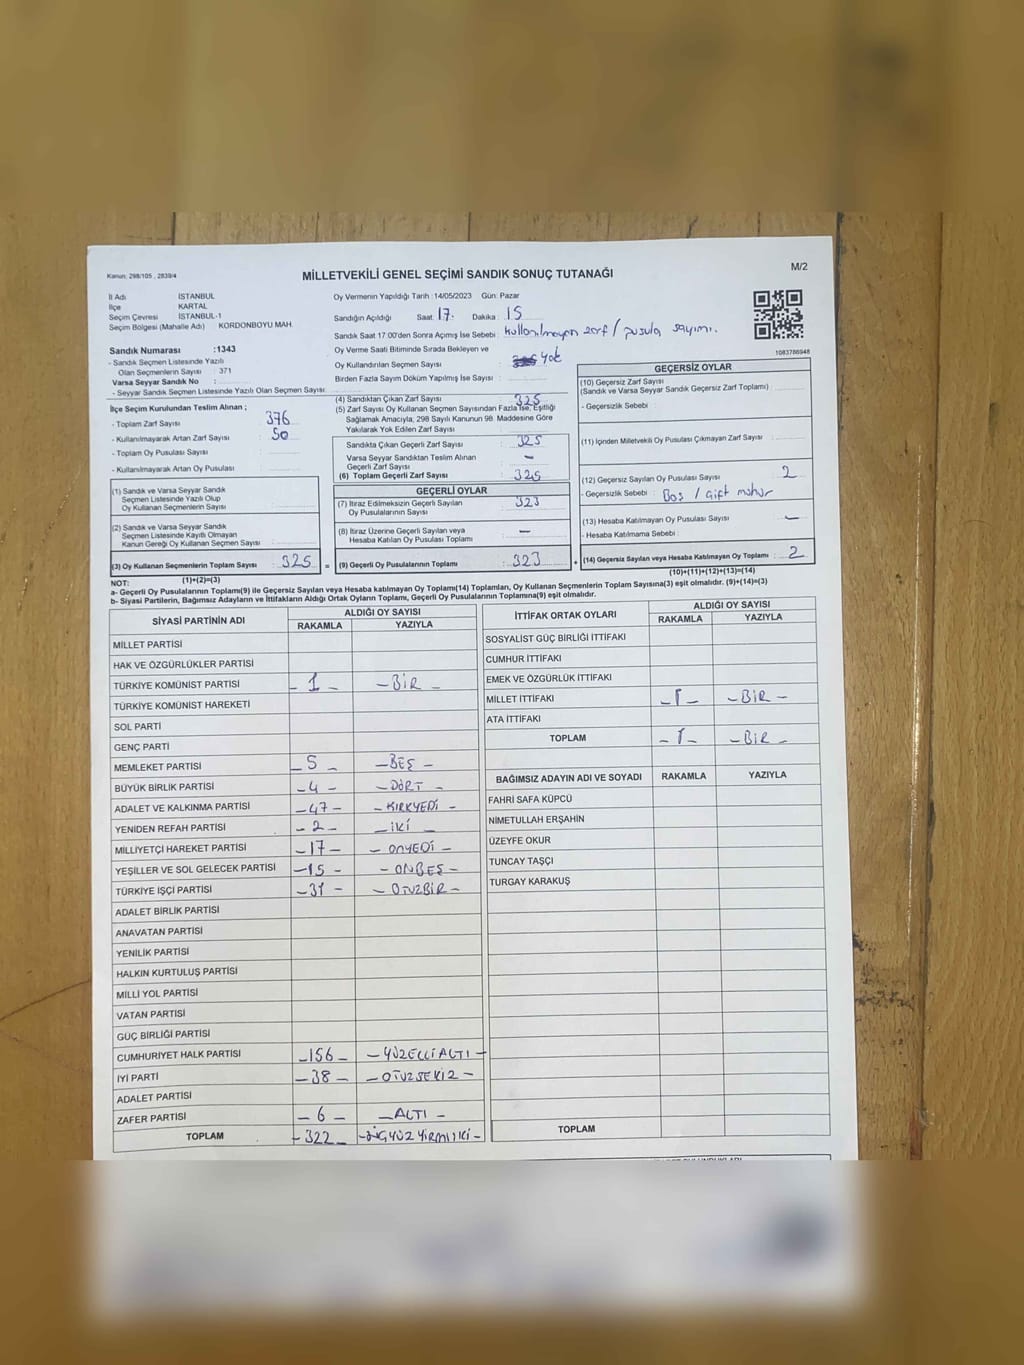 Kanun: 298/105 , 2839/4
MİLLETVEKİLİ GENEL SEÇİMİ SANDIK SONUÇ TUTANAĞI
M/2
İl Adı İSTANBUL
İlçe KARTAL
Seçim Çevresi İSTANBUL-1
Seçim Bölgesi (Mahalle Adı) KORDONBOYU MAH.
Sandık Numarası :1343
- Sandık Seçmen Listesinde Yazılı
Olan Seçmenlerin Sayısı : 371
Varsa Seyyar Sandık No :
- Seyyar Sandık Seçmen Listesinde Yazılı Olan Seçmen Sayısı:
Oy Vermenin Yapıldığı Tarih : 14/05/2023 Gün: Pazar
Sandığın Açıldığı Saat: 17. Dakika: 15
Sandık Saat 17:00'den Sonra Açımış İse Sebebi : kullanılmayan zarf / pusula sayımı.
Oy Verme Saati Bitiminde Sırada Bekleyen ve
Oy Kullandırılan Seçmen Sayısı yok
Birden Fazla Sayım Döküm Yapılmış İse Sayısı :
1083786948
İlçe Seçim Kurulundan Teslim Alınan ;
- Toplam Zarf Sayısı : 376
- Kullanılmayarak Artan Zarf Sayısı : 50
- Toplam Oy Pusulası Sayısı :
- Kullanılmayarak Artan Oy Pusulası :
(1) Sandık ve Varsa Seyyar Sandık
Seçmen Listesinde Yazılı Olup
Oy Kullanan Seçmenlerin Sayısı :
(2) Sandık ve Varsa Seyyar Sandık
Seçmen Listesinde Kayıtlı Olmayan
Kanun Gereği Oy Kullanan Seçmen Sayısı :
(3) Oy Kullanan Seçmenlerin Toplam Sayısı 325
(4) Sandıktan Çıkan Zarf Sayısı : 325
(5) Zarf Sayısı Oy Kullanan Seçmen Sayısından Fazla İse, Eşitliği
Sağlamak Amacıyla; 298 Sayılı Kanunun 98. Maddesine Göre
Yakılarak Yok Edilen Zarf Sayısı :
Sandıkta Çıkan Geçerli Zarf Sayısı : 325
Varsa Seyyar Sandıktan Teslim Alınan
Geçerli Zarf Sayısı : -
(6) Toplam Geçerli Zarf Sayısı : 325
GEÇERLİ OYLAR
(7) İtiraz Edilmeksizin Geçerli Sayılan
Oy Pusulalarının Sayısı : 323
(8) İtiraz Üzerine Geçerli Sayılan veya
Hesaba Katılan Oy Pusulası Toplamı : -
= (9) Geçerli Oy Pusulalarının Toplamı : 323
GEÇERSİZ OYLAR
(10) Geçersiz Zarf Sayısı
(Sandık ve Varsa Seyyar Sandık Geçersiz Zarf Toplamı) :
- Geçersizlik Sebebi :
(11) İçinden Milletvekili Oy Pusulası Çıkmayan Zarf Sayısı:
(12) Geçersiz Sayılan Oy Pusulası Sayısı : 2
- Geçersizlik Sebebi : Boş / çift mühür
(13) Hesaba Katılmayan Oy Pusulası Sayısı : -
- Hesaba Katılmama Sebebi :
+ (14) Geçersiz Sayılan veya Hesaba Katılmayan Oy Toplamı : 2
(10)+(11)+(12)+(13)=(14)
NOT: (1)+(2)=(3)
a- Geçerli Oy Pusulalarının Toplamı(9) ile Geçersiz Sayılan veya Hesaba katılmayan Oy Toplamı(14) Toplamları, Oy Kullanan Seçmenlerin Toplam Sayısına(3) eşit olmalıdır. (9)+(14)=(3)
b- Siyasi Partilerin, Bağımsız Adayların ve İttifakların Aldığı Ortak Oyların Toplamı, Geçerli Oy Pusulalarının Toplamına(9) eşit olmalıdır.
SİYASİ PARTİNİN ADI ALDIĞI OY SAYISI
RAKAMLA YAZIYLA
MİLLET PARTİSİ
HAK VE ÖZGÜRLÜKLER PARTİSİ
TÜRKİYE KOMÜNİST PARTİSİ - 1 - - BİR -
TÜRKİYE KOMÜNİST HAREKETİ
SOL PARTİ
GENÇ PARTİ
MEMLEKET PARTİSİ - 5 - - BEŞ -
BÜYÜK BİRLİK PARTİSİ - 4 - - DÖRT -
ADALET VE KALKINMA PARTİSİ - 47 - - KIRKYEDİ -
YENİDEN REFAH PARTİSİ - 2 - - İKİ -
MİLLİYETÇİ HAREKET PARTİSİ - 17 - - ONYEDİ -
YEŞİLLER VE SOL GELECEK PARTİSİ - 15 - - ONBEŞ -
TÜRKİYE İŞÇİ PARTİSİ - 31 - - OTUZBİR -
ADALET BİRLİK PARTİSİ
ANAVATAN PARTİSİ
YENİLİK PARTİSİ
HALKIN KURTULUŞ PARTİSİ
MİLLİ YOL PARTİSİ
VATAN PARTİSİ
GÜÇ BİRLİĞİ PARTİSİ
CUMHURİYET HALK PARTİSİ - 156 - - YÜZELLİALTI -
İYİ PARTİ - 38 - - OTUZSEKİZ -
ADALET PARTİSİ
ZAFER PARTİSİ - 6 - - ALTI -
TOPLAM - 322 - - ÜÇYÜZ YİRMİ İKİ -
İTTİFAK ORTAK OYLARI ALDIĞI OY SAYISI
RAKAMLA YAZIYLA
SOSYALİST GÜÇ BİRLİĞİ İTTİFAKI
CUMHUR İTTİFAKI
EMEK VE ÖZGÜRLÜK İTTİFAKI
MİLLET İTTİFAKI - 1 - - BİR -
ATA İTTİFAKI
TOPLAM - 1 - - BİR -
BAĞIMSIZ ADAYIN ADI VE SOYADI RAKAMLA YAZIYLA
FAHRİ SAFA KÜPCÜ
NİMETULLAH ERŞAHİN
ÜZEYFE OKUR
TUNCAY TAŞÇI
TURGAY KARAKUŞ
TOPLAM